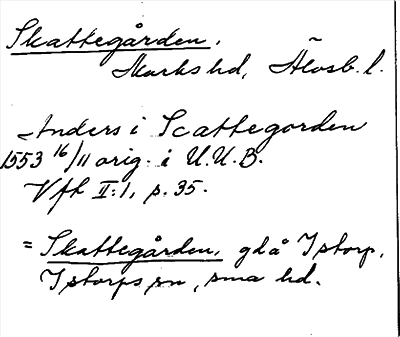 Skattegården,
Marks hd, Älvsb. l.
Anders i Scattegorden
1553 16/11 orig. i U.U.B.
Vfh II:1, s. 35.
= Skattegården, gd å Istorp,
Istorps sn, sma hd.